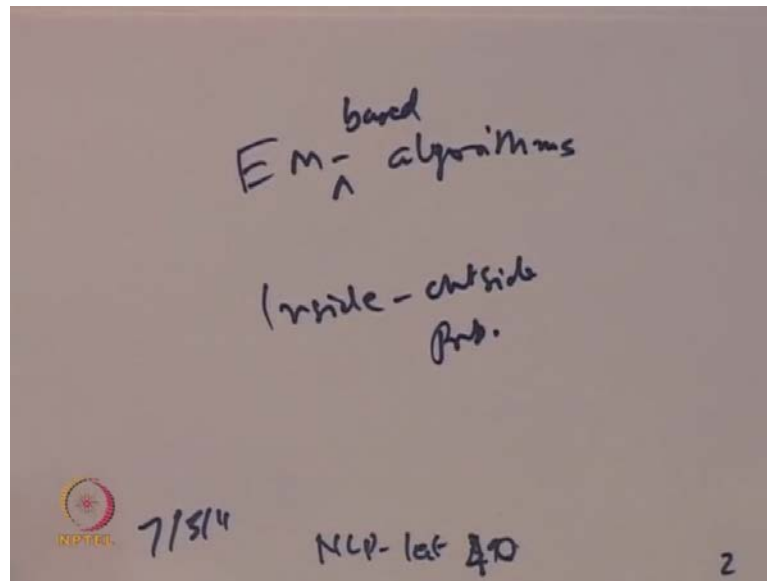 based
EM-^ algorithms
Inside-outside
Prob.
NPTEL
7/5/11 NLP-lect 40 2